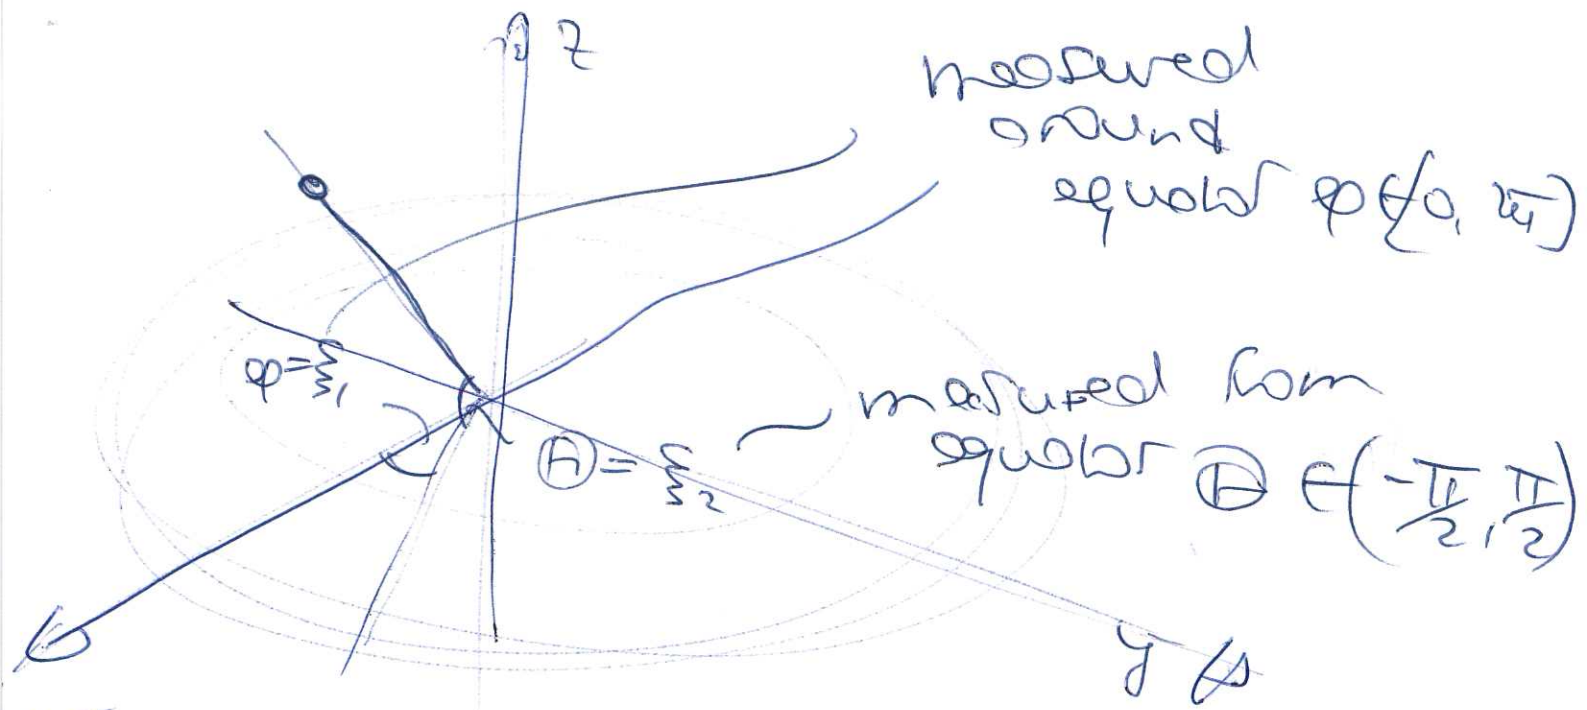 z
measured
around
equator φ∈[0, 2π)
φ=ξ₁
Θ=ξ₂
measured from
equator Θ ∈(-π/2, π/2)
y